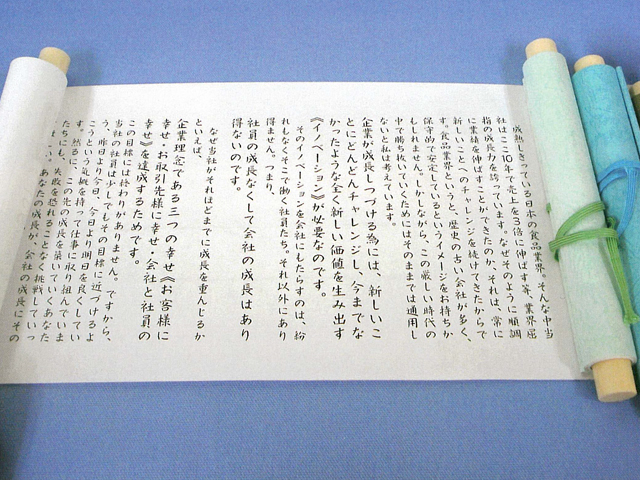 成熟しきっている日本の食品業界。そんな中当
社はここ10年で売上を3倍に伸ばす等、業界屈
指の成長力を誇っています。なぜそのように順調
に業績を伸ばすことができたのか、それは、常に
新しいことへのチャレンジを続けてきたからで
す。食品業界というと、歴史の古い会社が多く、
保守的で安定しているというイメージをお持ちか
もしれません。しかしながら、この厳しい時代の
中で勝ち抜いていくためにはそのままでは通用し
ないと私は考えています。
企業が成長しつづける為には、新しいこ
とにどんどんチャレンジし、今までな
かったような全く新しい価値を生み出す
《イノベーション》が必要なのです。
そのイノベーションを会社にもたらすのは、紛
れもなくそこで働く社員たち。それ以外にあり
得ません。つまり、
社員の成長なくして会社の成長はあり
得ないのです。
なぜ当社がそれほどまでに成長を重んじるか
といえば、
企業理念である三つの幸せ《お客様に
幸せ・お取引先様に幸せ・会社と社員の
幸せ》を達成するためです。
この目標には終わりがありません。ですから、
当社の社員は少しでもその目標に近づけるよ
う、昨日より今日、今日より明日を良くしてい
こうという気概を持って仕事に取り組んでいま
す。然るに、この先の成長を築いていくあなた
たちにも、失敗を恐れることなく挑戦していっ
あなたの成長が、会社の成長にその